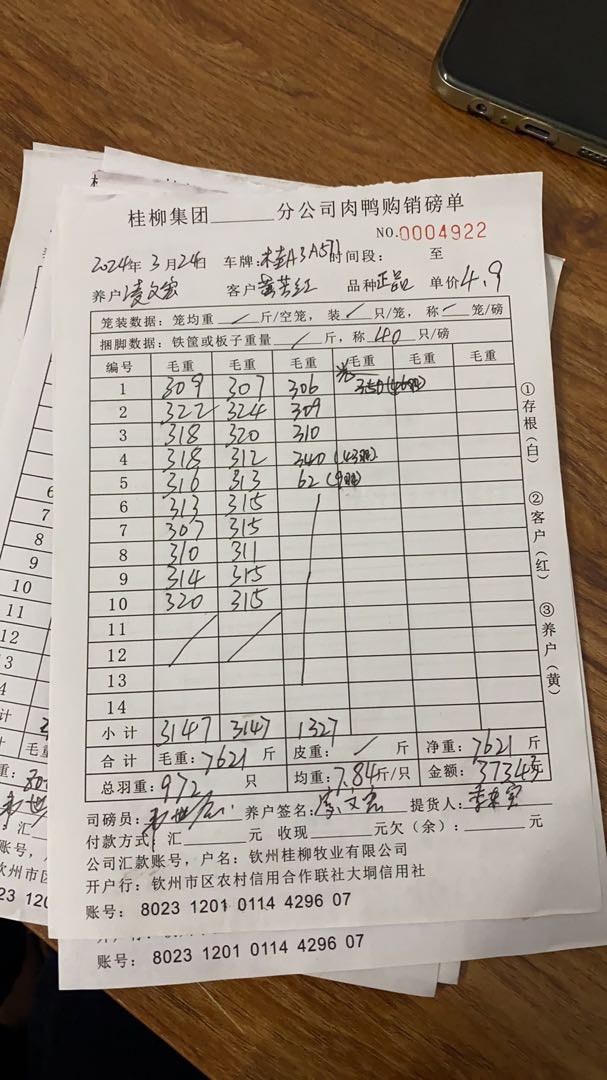 桂柳集团______分公司肉鸭购销磅单
NO.0004922
2024年 3月24日 车牌: A3A571 时间段: 至
养户 凌文宏 客户 黄芸红 品种 正品 单价 4.9
笼装数据: 笼均重 / 斤/空笼, 装 / 只/笼, 称 / 笼/磅
捆脚数据: 铁筐或板子重量 / 斤, 称 40 只/磅
编号 毛重 毛重 毛重 毛重 毛重 毛重
1 309 307 306 350
2 322 324 309
3 318 320 310
4 318 312 340 (43只)
5 316 313 62 (9只)
6 313 315
7 307 315
8 310 311
9 314 315
10 320 315
11
12
13
14
小计 3147 3147 1327
合计 毛重: 7621 斤 皮重: / 斤 净重: 7621 斤
总羽重: 972 只 均重: 7.84 斤/只 金额: 37345元
司磅员: 养户签名: 凌文宏 提货人:
付款方式: 汇______元 收现______元欠(余): ______元
公司汇款账号, 户名: 钦州桂柳牧业有限公司
开户行: 钦州市区农村信用合作联社大垌信用社
账号: 8023 1201 0114 4296 07
①存根(白)
②客户(红)
③养户(黄)
账号: 8023 1201 0114 4296 07